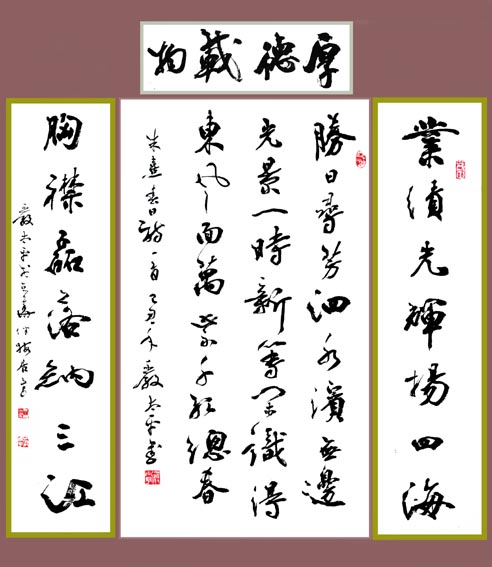 厚德載物
業績光輝揚四海
勝日尋芳泗水濱無邊
光景一時新等閑識得
東風面萬紫千紅總春
朱熹春日詩一首 嚴太平書
胸襟磊落納三江
嚴太平